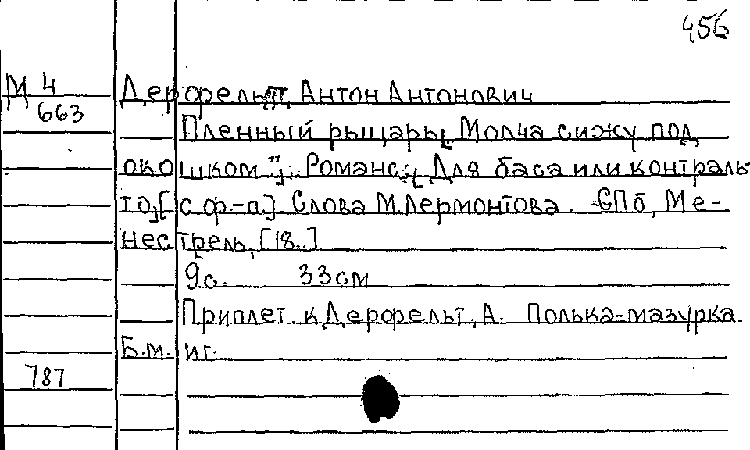 456
М 4
663
Дерфельт, Антон Антонович
Пленный рыцарь[„Молча сижу под
окошком"]. Романс. [Для баса или контраль-
то, [с ф.-п.] Слова М. Лермонтова. СПб, Ме-
нестрель, [18..]
9 с. 33 см
Приплет. к Дерфельт, А. Полька-мазурка.
Б.м. и г.
787